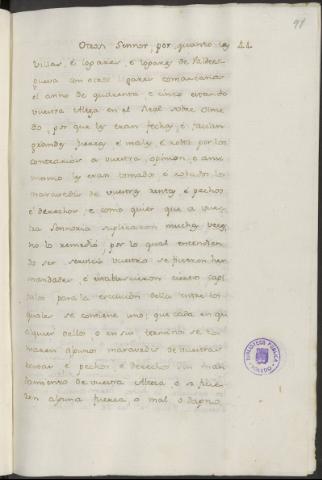 91
Otrosi Sennor, por quanto las 44
Villas, è logares, è logares de Valdes
gueva con otros logares comarcanos
el anno de quarenta è cinco estando
vuestra Alteza en el Real sobre Olme
do, por que les eran fechas, è facian
grandes fuerzas, è males, è robos por los
contrarios a vuestra opinion, è ansi
mismo les eran tomados è robados los
maravedis de vuestras rentas, è pechos
è derechos, è como quier que a vues
tra Sennoria suplicaron muchas veces
no lo remedió; por lo qual entendien
do ser servicio vuestro se ficieron her
mandades, è establecieron ciertos capi
tulos para la execucion dello entre los
quales se contiene uno; que cada en qui
alquier dello o en sus terminos se to
maren algunos maravedis de vuestras
rentas è pechos, è derechos sin man
damiento de vuestra Alteza, ò se ficie
ren alguna fuerza, o mal, o dagno,
BIBLIOTECA PUBLICA
TOLEDO